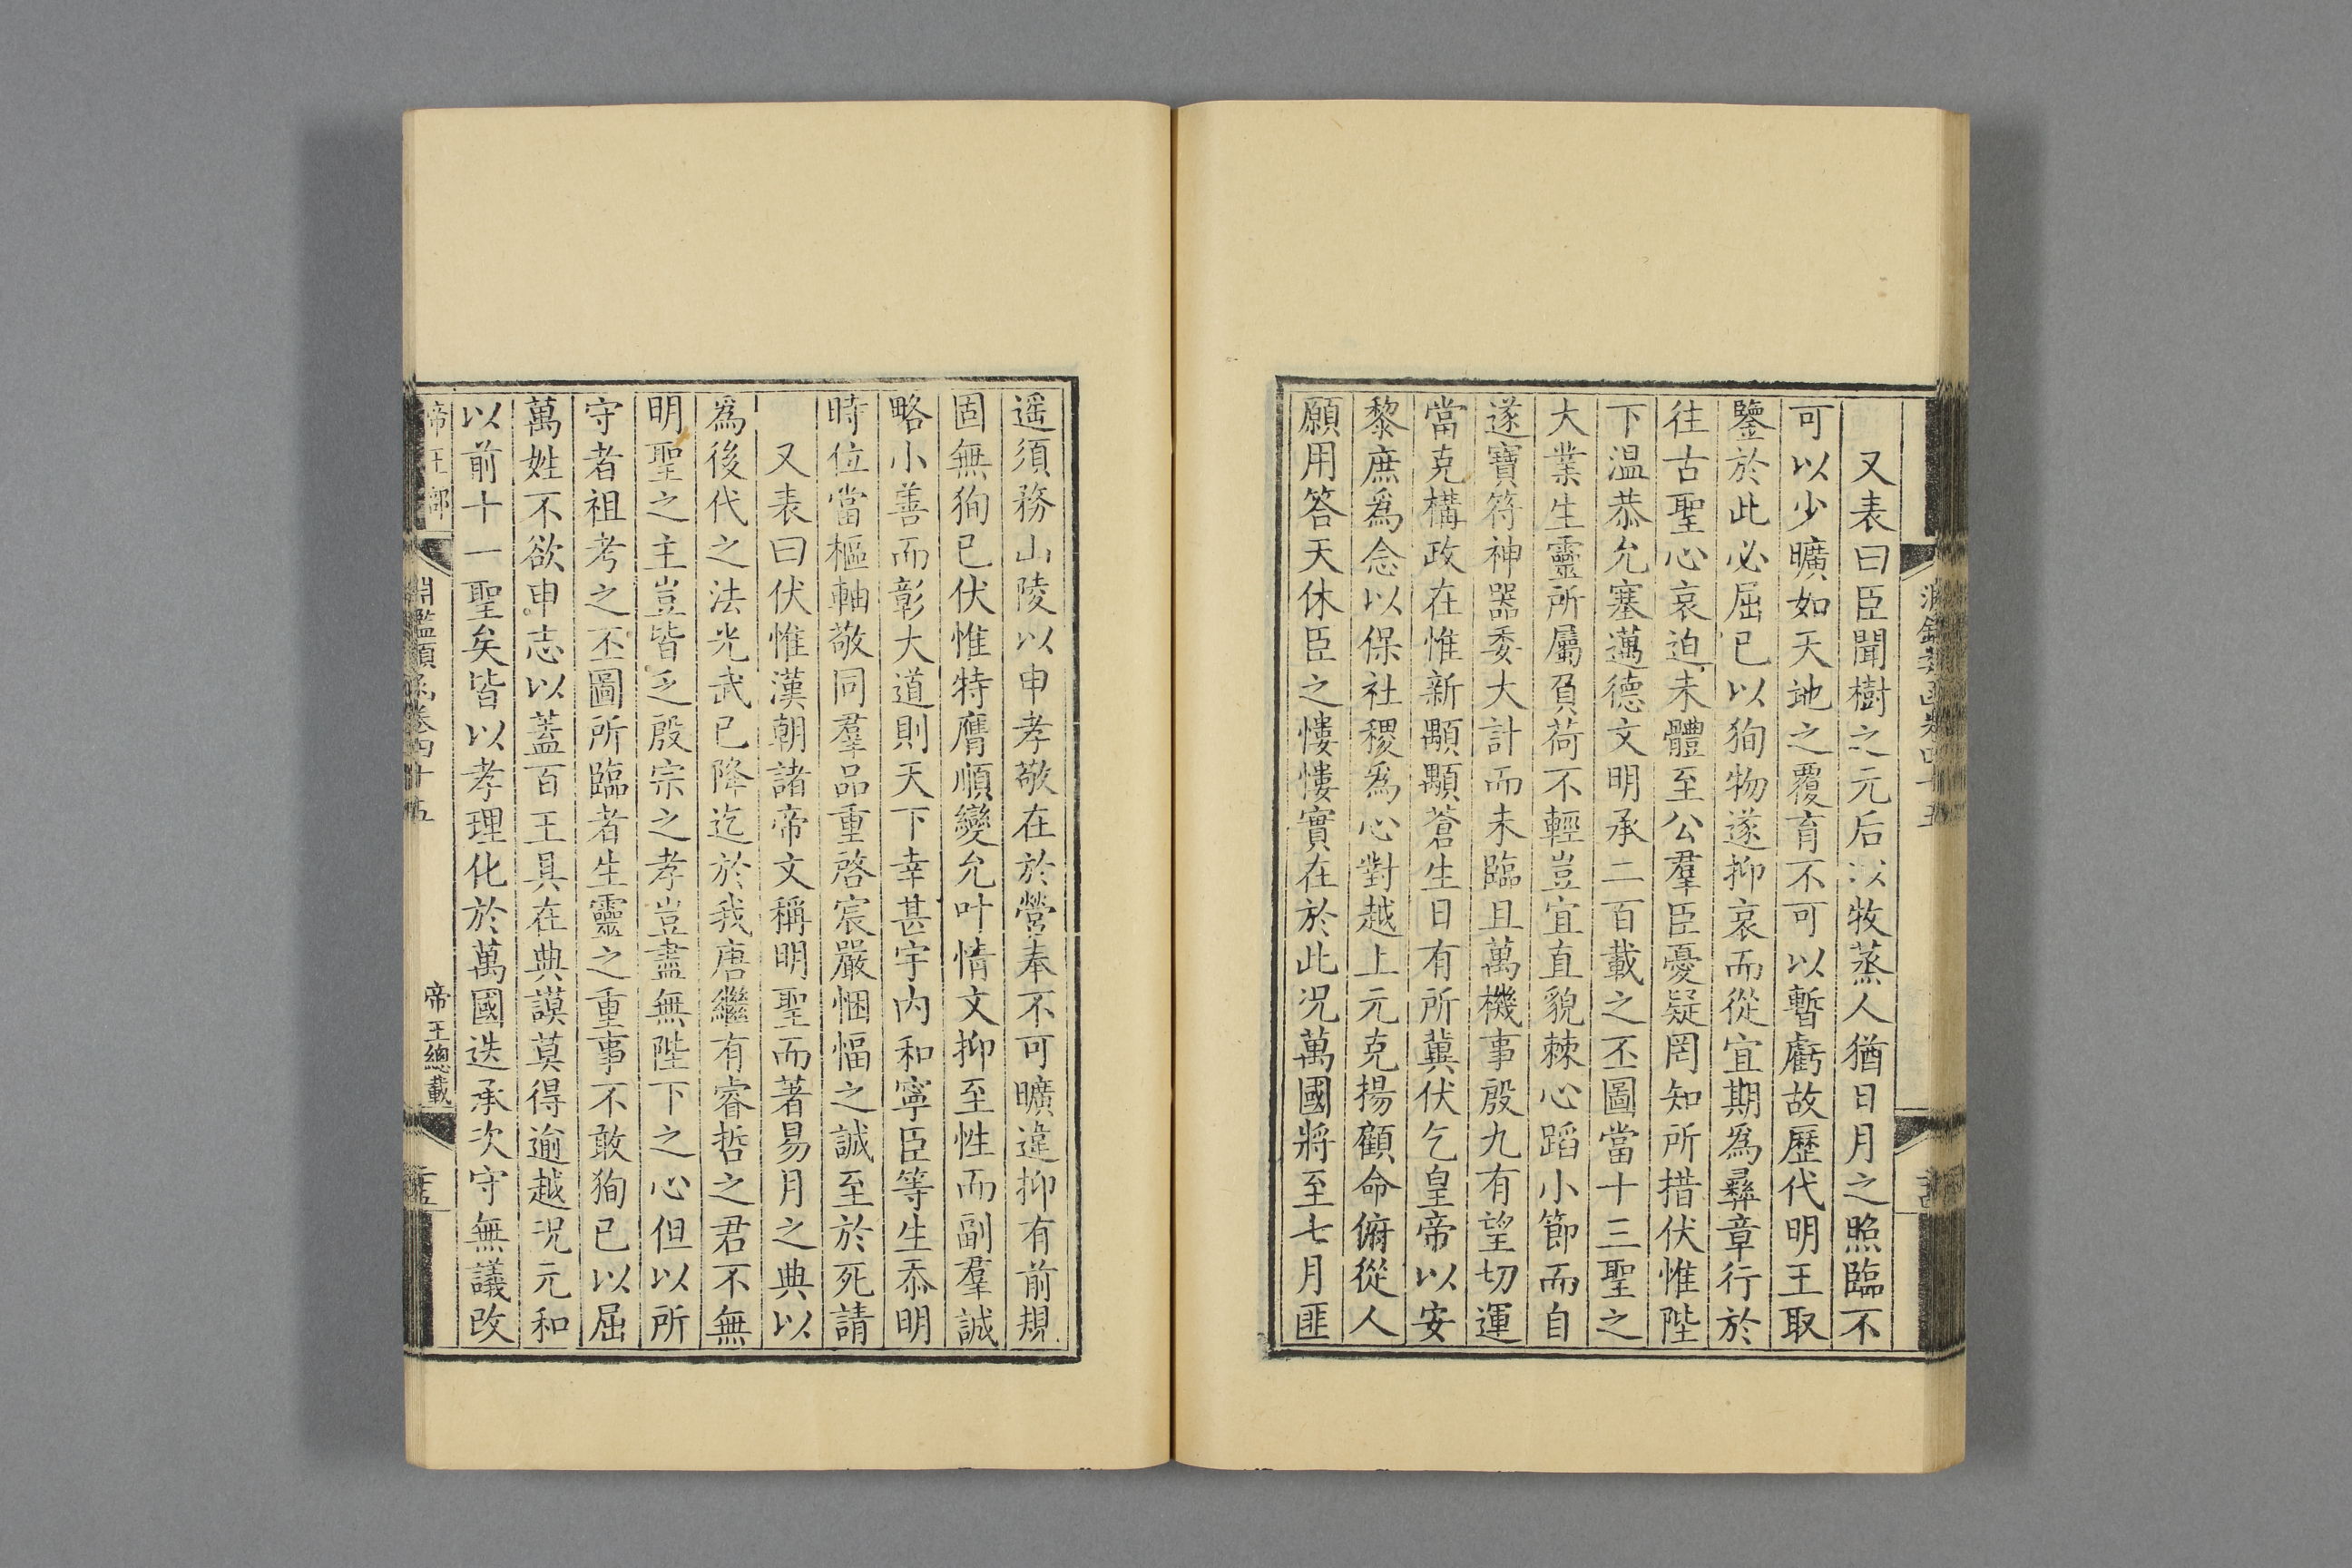 又表曰臣聞樹之元后以牧蒸人猶日月之照臨不
可以少曠如天地之覆育不可以暫虧故歷代明王取
鑒於此必屈已以狥物遂抑哀而從宜期爲彝章行於
往古聖心哀迫未體至公羣臣憂疑罔知所措伏惟陛
下温恭允塞邁德文明承二百載之丕圖當十三聖之
大業生靈所屬負荷不輕豈宜直貌棘心蹈小節而自
遂寶符神器委大計而未臨且萬機事殷九有望切運
當克構政在惟新顒顒蒼生日有所冀伏乞皇帝以安
黎庶爲念以保社稷爲心對越上元克揚顧命俯從人
願用答天休臣之慺慺實在於此况萬國將至七月匪
遥須務山陵以申孝敬在於營奉不可曠違抑有前規
固無狥已伏惟特膺順變允叶情文抑至性而副羣誠
略小善而彰大道則天下幸甚宇内和寧臣等生忝明
時位當樞軸敬同羣品重啓宸嚴悃愊之誠至於死請
又表曰伏惟漢朝諸帝文稱明聖而著易月之典以
爲後代之法光武已降迄於我唐繼有睿哲之君不無
明聖之主豈皆乏殷宗之孝豈盡無陛下之心但以所
守者祖考之丕圖所臨者生靈之重事不敢狥已以屈
萬姓不欲申志以蓋百王具在典謨莫得逾越况元和
以前十一聖矣皆以孝理化於萬國迭承次守無議改
帝王部
淵鑑類函卷四十五
帝王總載